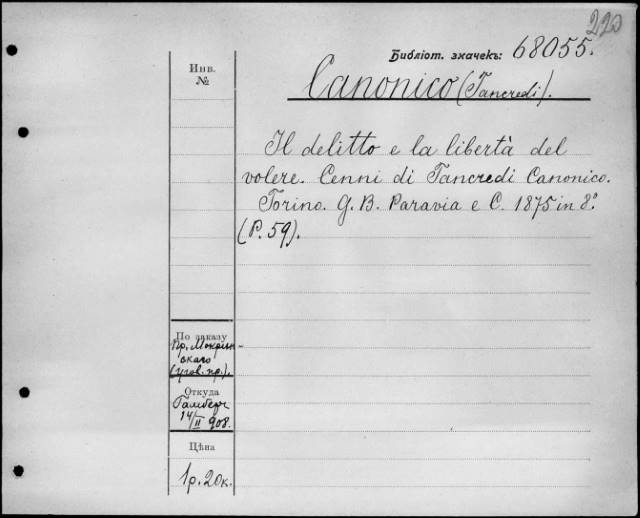 220
Библіот. значекъ: 68055.
Инв.
№
Canonico (Tancredi).
Il delitto e la libertà del
volere. Cenni di Tancredi Canonico.
Torino. G. B. Paravia e C. 1875 in 8°.
(P. 59).
По заказу
Пр. Мокрин-
скаго
(угов. пр.).
Откуда
14/II 908.
Цѣна
1 р. 20 к.